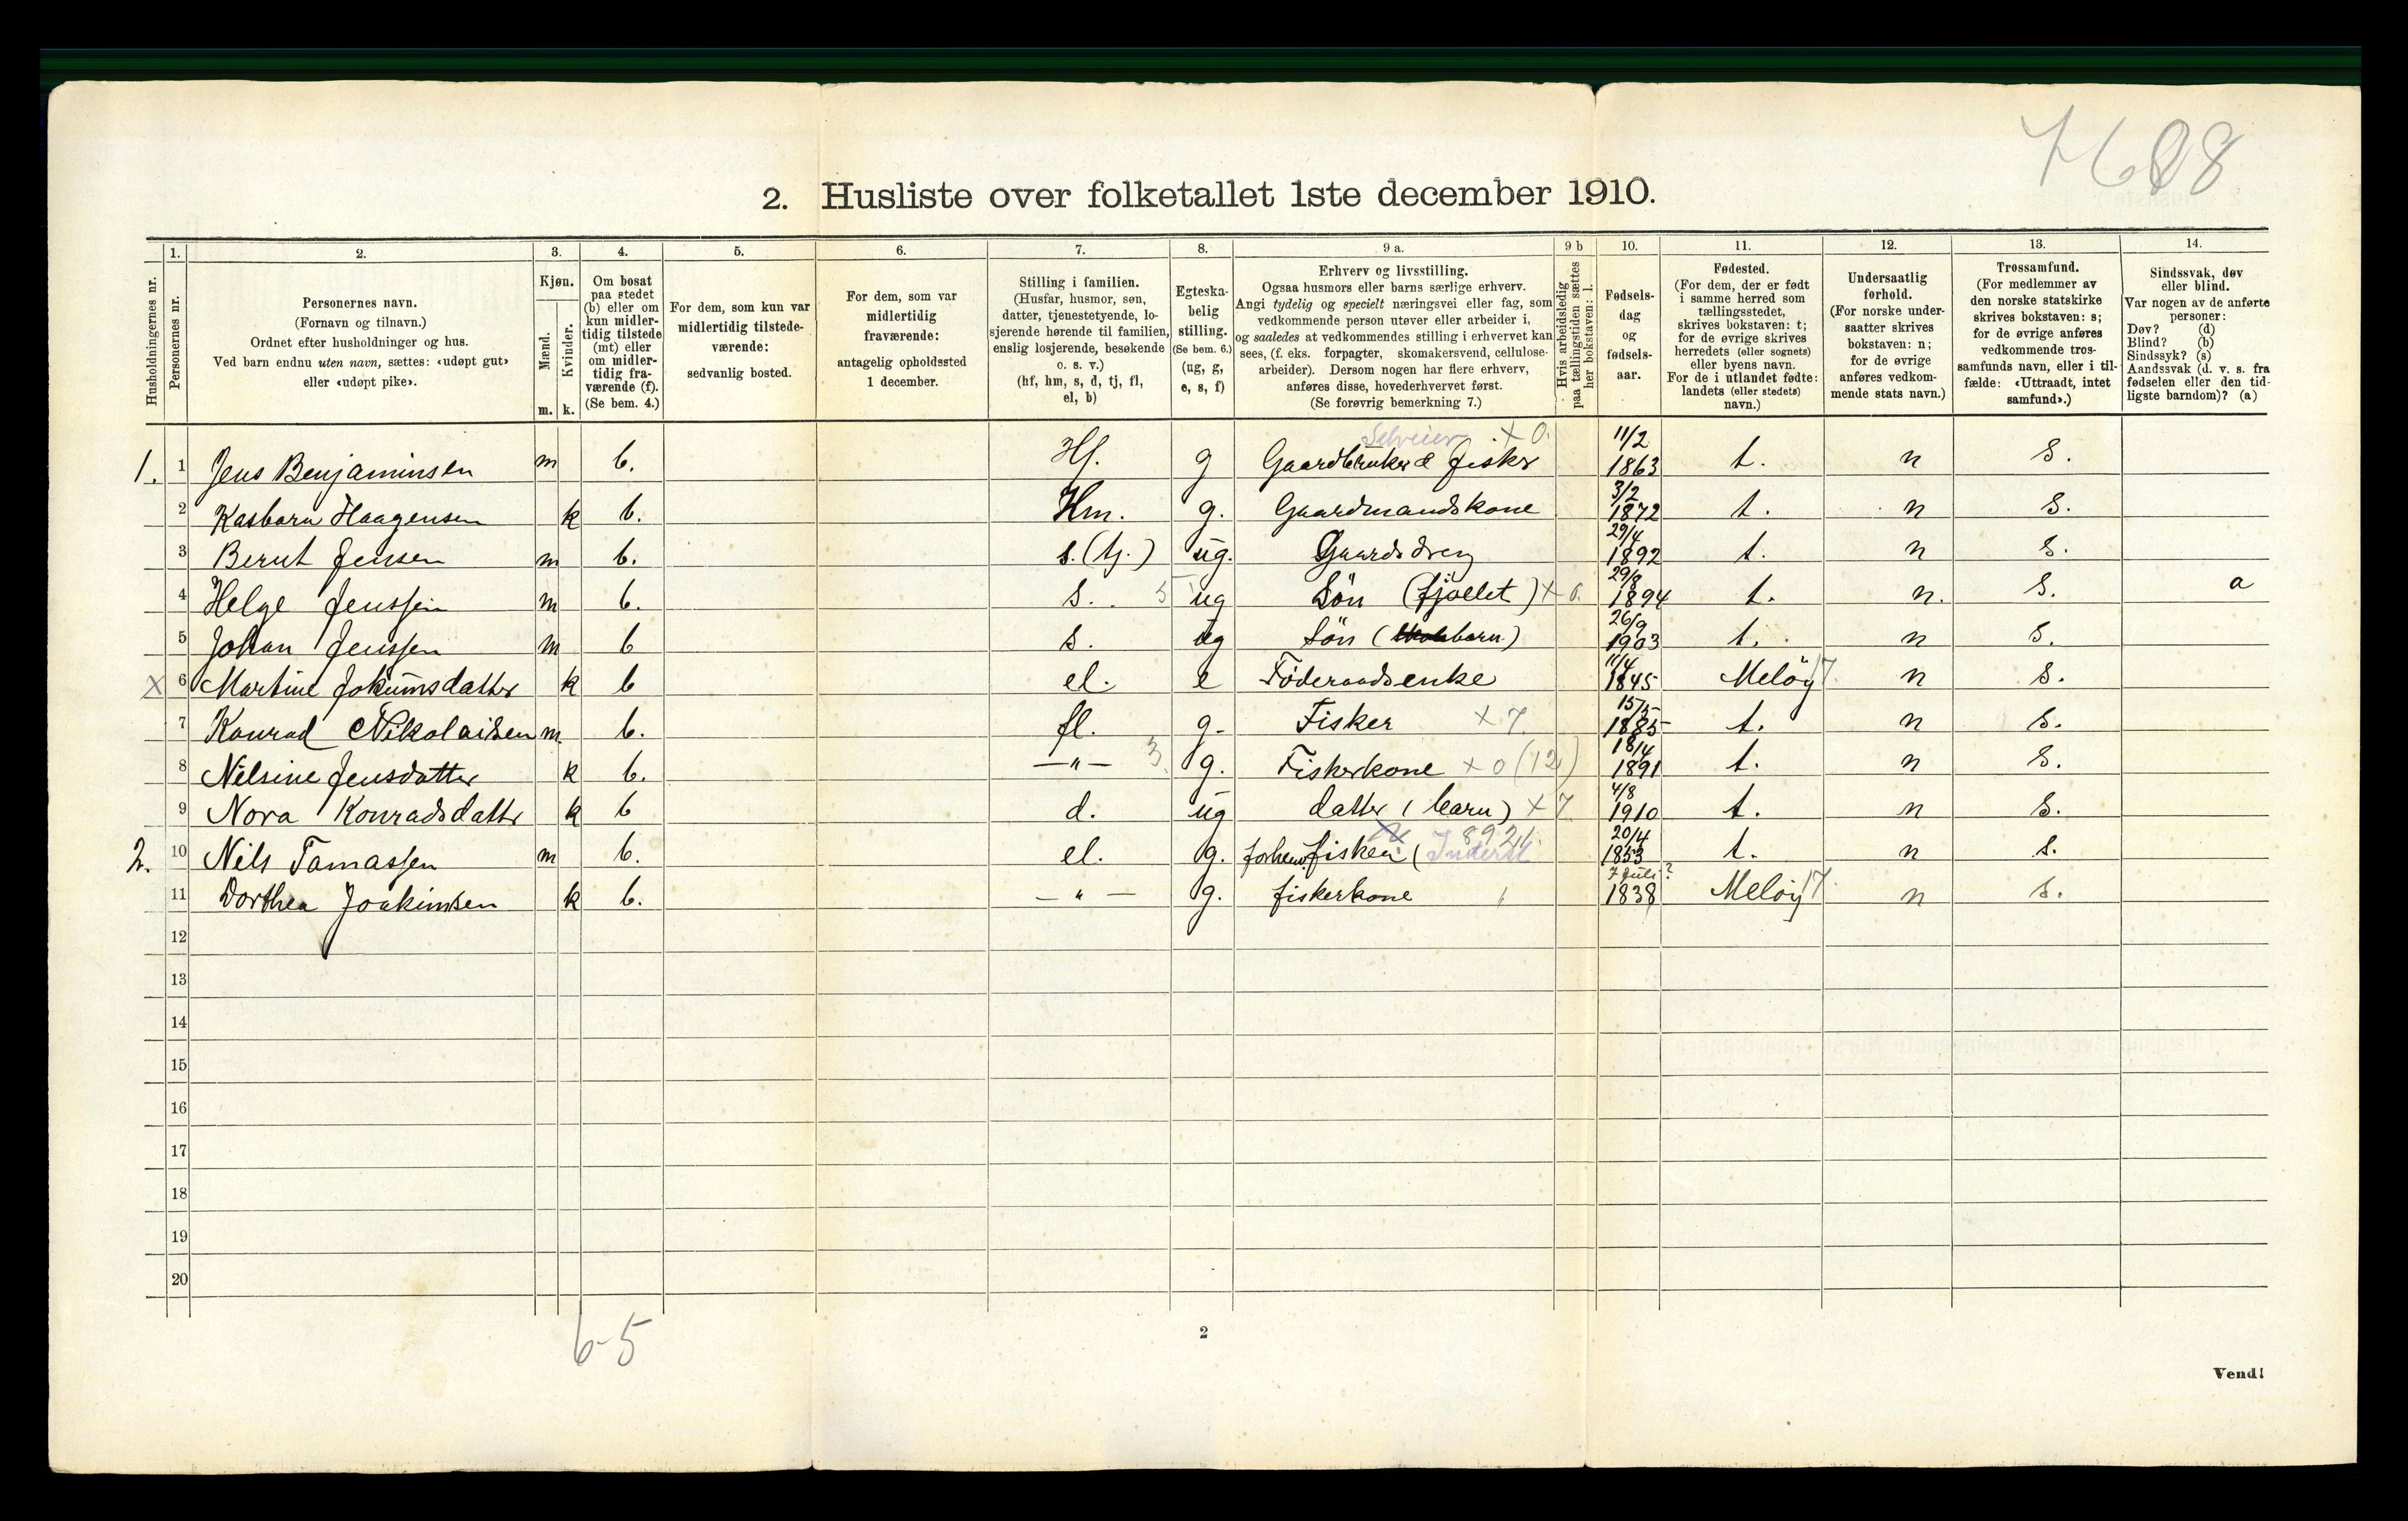 7688
2. Husliste over folketallet 1ste december 1910.
1. 2. 3. 4. 5. 6. 7. 8. 9 a. 9 b 10. 11. 12. 13. 14.
Husholdningernes nr.
Personernes nr.
Personernes navn.
(Fornavn og tilnavn.)
Ordnet efter husholdninger og hus.
Ved barn endnu uten navn, sættes: «udøpt gut»
eller «udøpt pike».
Kjøn.
Mænd.
Kvinder.
m. k.
Om bosat
paa stedet
(b) eller om
kun midler-
tidig tilstede
(mt) eller
om midler-
tidig fra-
værende (f).
(Se bem. 4.)
For dem, som kun var
midlertidig tilstede-
værende:
sedvanlig bosted.
For dem, som var
midlertidig
fraværende:
antagelig opholdssted
1 december.
Stilling i familien.
(Husfar, husmor, søn,
datter, tjenestetyende, lo-
sjerende hørende til familien,
enslig losjerende, besøkende
o. s. v.)
(hf, hm, s, d, tj, fl,
el, b)
Egteska-
belig
stilling.
(Se bem. 6.)
(ug, g,
e, s, f)
Erhverv og livsstilling.
Ogsaa husmors eller barns særlige erhverv.
Angi tydelig og specielt næringsvei eller fag, som
vedkommende person utøver eller arbeider i,
og saaledes at vedkommendes stilling i erhvervet kan
sees, (f. eks. forpagter, skomakersvend, cellulose-
arbeider). Dersom nogen har flere erhverv,
anføres disse, hovederhvervet først.
(Se forøvrig bemerkning 7.)
Hvis arbeidsledig
paa tællingstiden sættes
her bokstaven: l.
Fødsels-
dag
og
fødsels-
aar.
Fødested.
(For dem, der er født
i samme herred som
tællingsstedet,
skrives bokstaven: t;
for de øvrige skrives
herredets (eller sognets)
eller byens navn.
For de i utlandet fødte:
landets (eller stedets)
navn.)
Undersaatlig
forhold.
(For norske under-
saatter skrives
bokstaven: n;
for de øvrige
anføres vedkom-
mende stats navn.)
Trossamfund.
(For medlemmer av
den norske statskirke
skrives bokstaven: s;
for de øvrige anføres
vedkommende tros-
samfunds navn, eller i til-
fælde: «Uttraadt, intet
samfund».)
Sindssvak, døv
eller blind.
Var nogen av de anførte
personer:
Døv? (d)
Blind? (b)
Sindssyk? (s)
Aandssvak (d. v. s. fra
fødselen eller den tid-
ligste barndom)? (a)
Selveier x 0. 11/2
1. 1 Jens Benjaminsen m b. Hf. g Gaardbruker & fisker 1863 t. n s.
3/2
2 Kasbara Haagensen k b. Hm. g. Gaardmandskone 1872 t. n s.
29/4
3 Bernt Jensen m b. s. (tj.) ug. Gaardsdreng 1892 t. n s.
29/8
4 Helge Jenssen m b. s. 5 ug Søn (fjollet) x 0. 1894 t. n. s. a
26/9
5 Johan Jenssen m b s. ug Søn (barn) 1903 t. n s.
11/4
x 6 Martine Jokumsdatter k b el. e Föderaadsenke 1845 Meløy 17. n s.
15/5
7 Konrad Nikolaisen m. b. fl. g. Fisker x 7. 1885 t. n s.
18/4
8 Nilsine Jensdatter k b. —"— 3. g. Fiskerkone x 0 (12) 1891 t. n s.
4/8
9 Nora Konradsdatter k b d. ug datter (barn) x 7. 1910 t. n s.
8921. 20/4
2. 10 Nils Tamassen m b. el. g. forhenv. fisker (Inderst 1853 t. n s.
7 Juli ?
11 Dorthea Joakimsen k b. —"— g. fiskerkone 1838 Meløy 17. n s.
12
13
14
15
16
17
18
19
20
6-5
2
Vend!